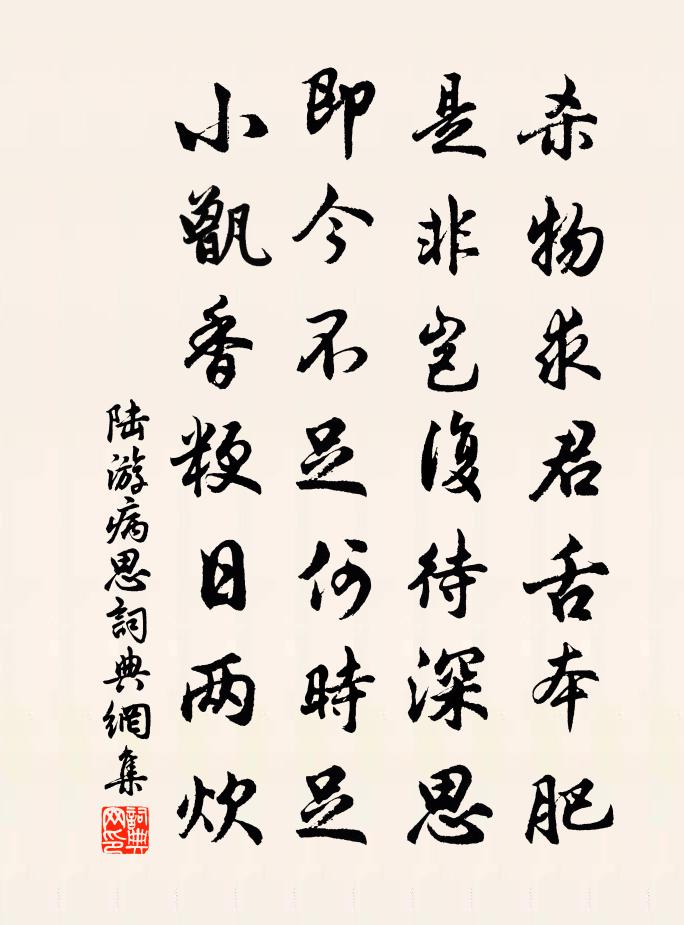 杀物求君舌本肥
是非岂復待深思
即今不足何時足
小甑香粳日两炊
陆游病思詞典網集
詞典網印